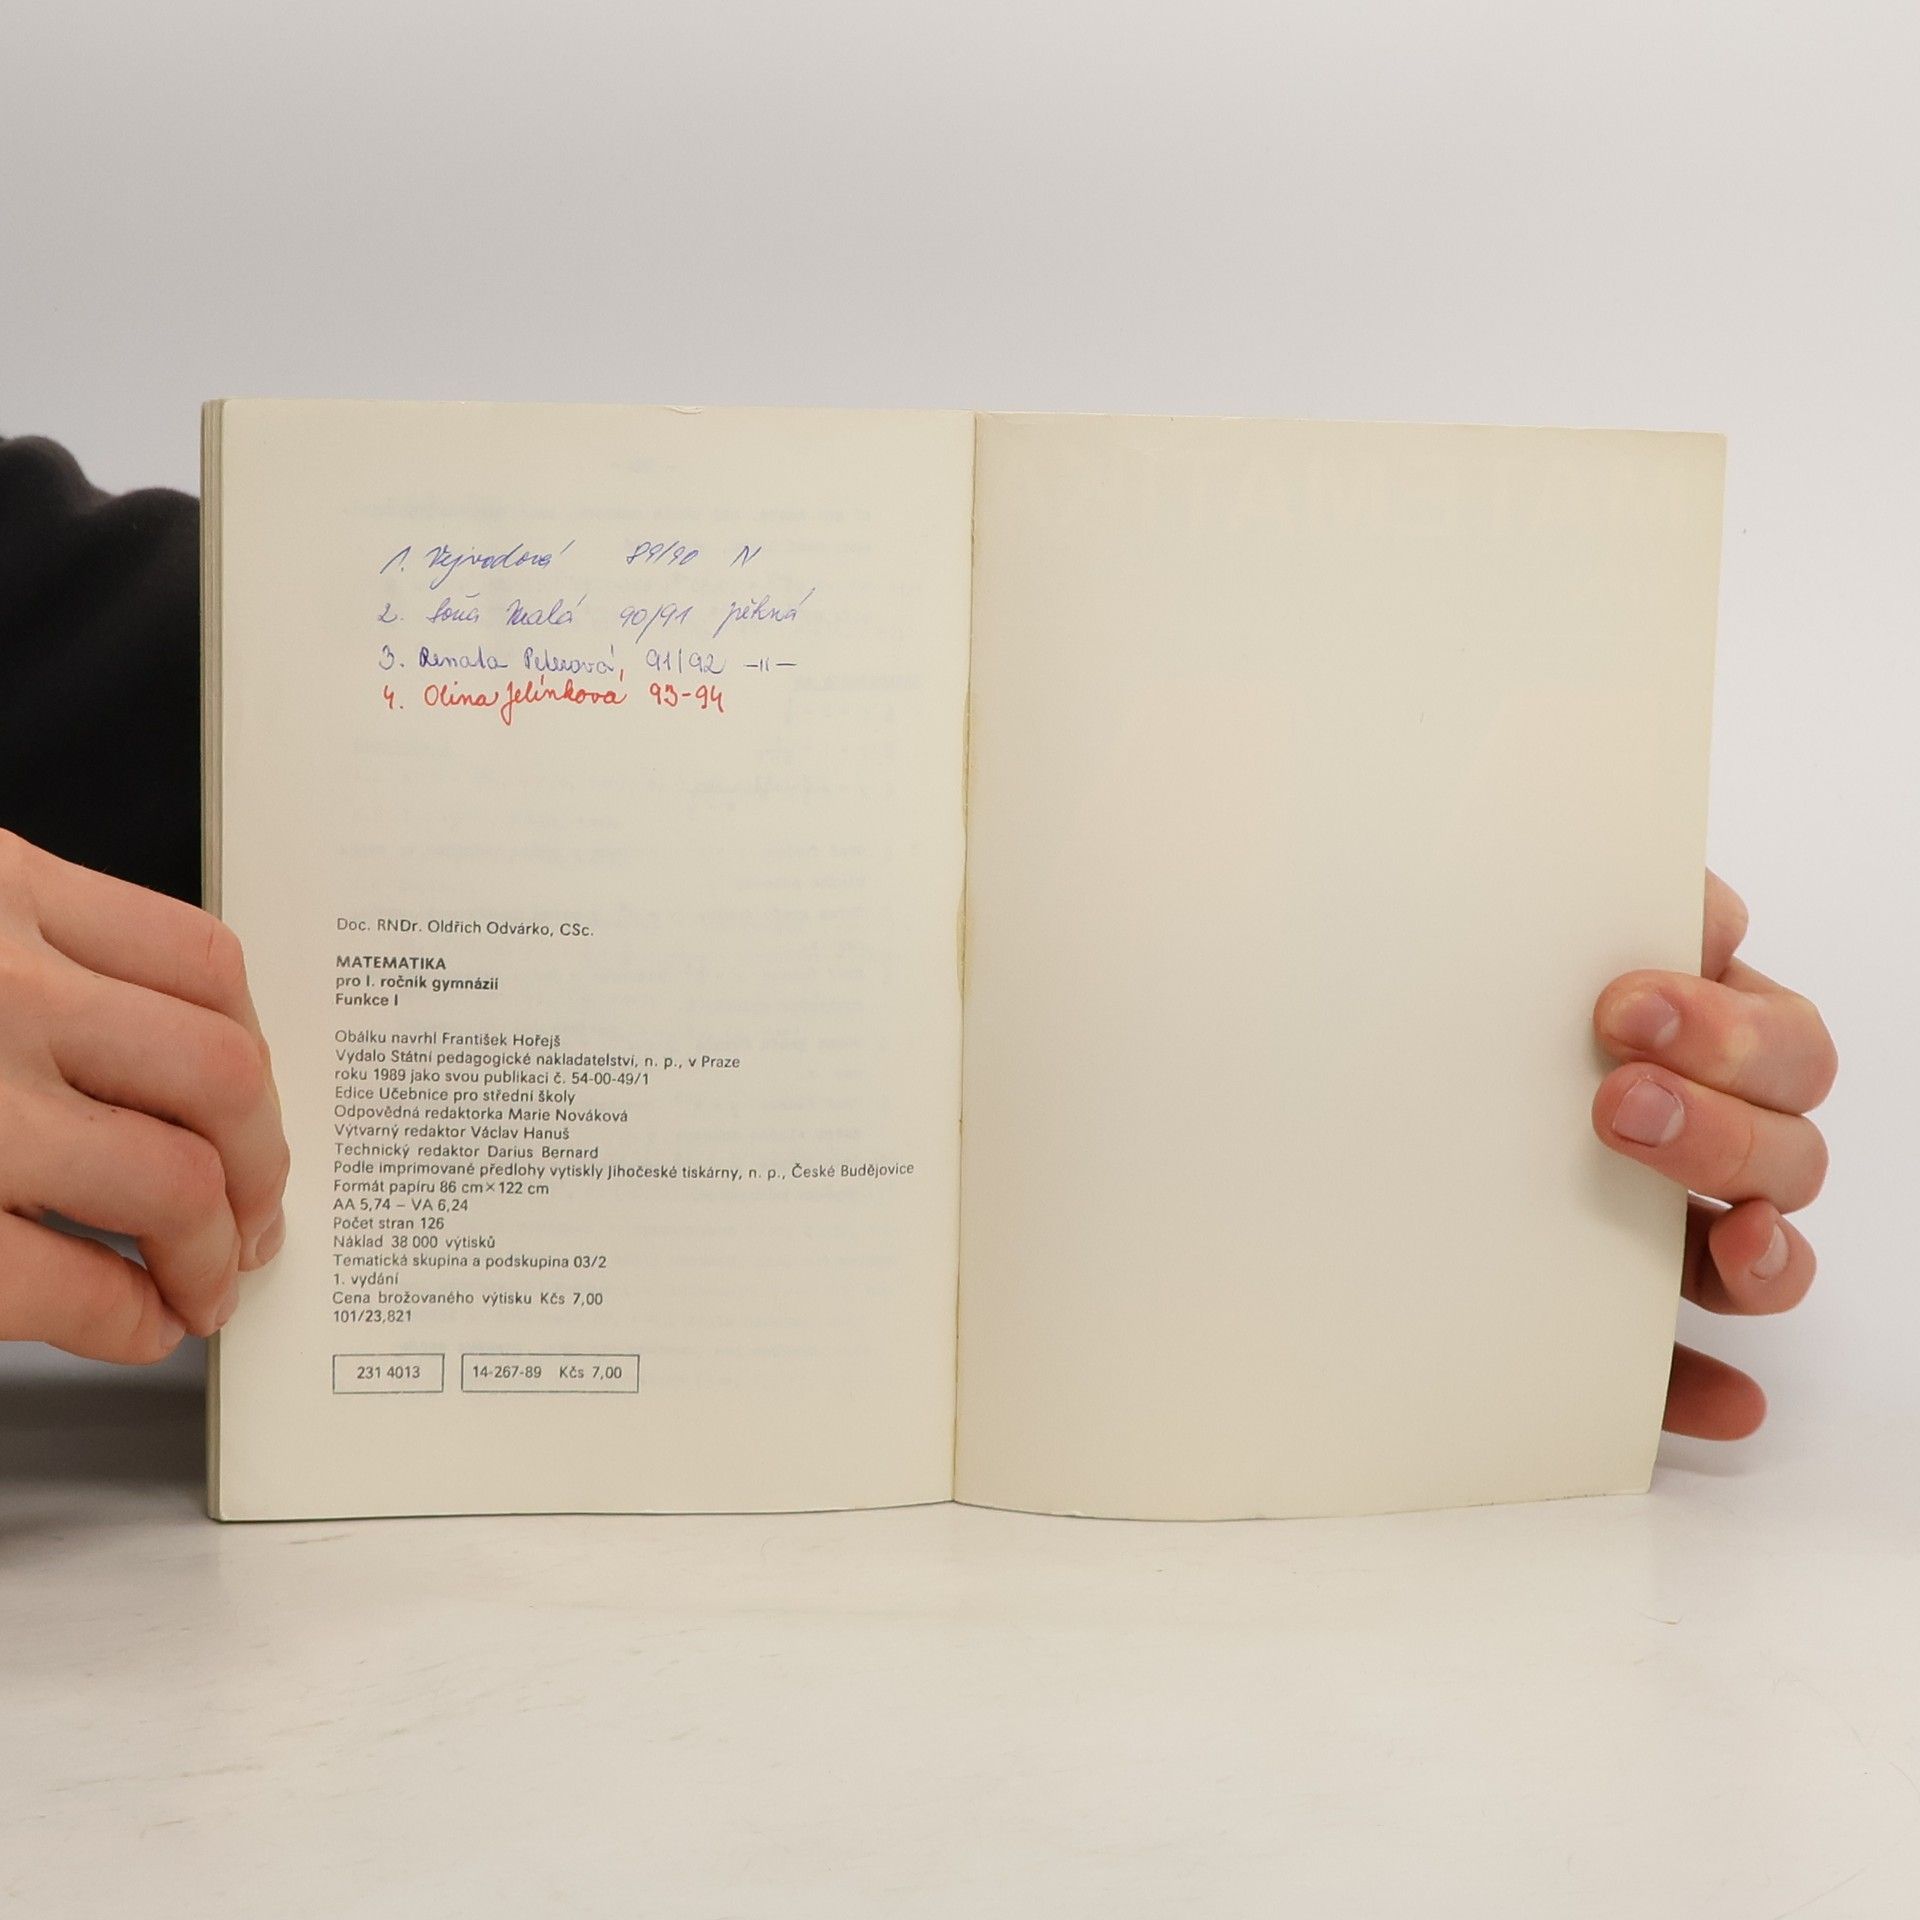 1. Vejvodová 89/90 N
2. Soňa Malá 90/91 pěkná
3. Renata Peterová, 91/92 —II—
4. Olina Jelínková 93-94
Doc. RNDr. Oldřich Odvárko, CSc.
MATEMATIKA
pro I. ročník gymnázií
Funkce I
Obálku navrhl František Hořejš
Vydalo Státní pedagogické nakladatelství, n. p., v Praze
roku 1989 jako svou publikaci č. 54-00-49/1
Edice Učebnice pro střední školy
Odpovědná redaktorka Marie Nováková
Výtvarný redaktor Václav Hanuš
Technický redaktor Darius Bernard
Podle imprimované předlohy vytiskly Jihočeské tiskárny, n. p., České Budějovice
Formát papíru 86 cm×122 cm
AA 5,74 – VA 6,24
Počet stran 126
Náklad 38 000 výtisků
Tematická skupina a podskupina 03/2
1. vydání
Cena brožovaného výtisku Kčs 7,00
101/23,821
231 4013 14-267-89 Kčs 7,00